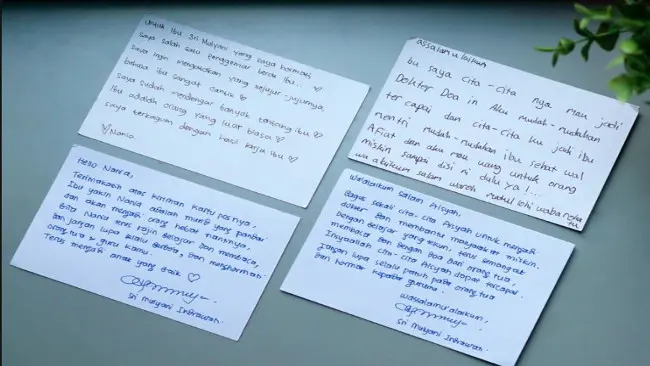 Untuk Ibu Sri Mulyani yang saya hormati
Saya salah satu penggemar berat Ibu... ♡
Saya ingin mengatakan yang sejujur-jujurnya,
bahwa ibu sangat cantik ♡
Saya sudah mendengar banyak tentang ibu ♡
Ibu adalah orang yang luar biasa ♡
saya terkagum dengan hasil kerja ibu ♡
♡Nania
assalamualaikum
bu saya cita-cita nya mau jadi
Dokter Doa in Aku mudah-mudahan
tercapai dan cita-cita ku jadi ibu
mentri mudah-mudahan ibu sehat wal
Afiat dan aku mau uang untuk orang
miskin sampai disi ni dulu ya!...
wa alaikum salam
Hello Nania,
Terimakasih atas kiriman kartu posnya,
Ibu yakin Nania adalah murid yang pandai
dan akan menjadi orang hebat nantinya,
Bila Nania terus rajin belajar dan membaca,
Dan jangan lupa selalu berdoa, dan menghormati
orang tua & guru kamu.
Terus menjadi anak yang baik ♡
Sri Mulyani Indrawati
Walaikum Salam Aisyah,
Bagus sekali cita-cita Aisyah untuk menjadi
dokter dan membantu masyarakat miskin.
Dengan belajar yang tekun, terus semangat
membaca dan dengan doa dari orang tua,
Insyaallah cita-cita Aisyah dapat tercapai.
Jangan lupa selalu patuh pada orang tua
dan hormat kepada gurumu.
Wassalamu'alaikum,
Sri Mulyani Indrawati